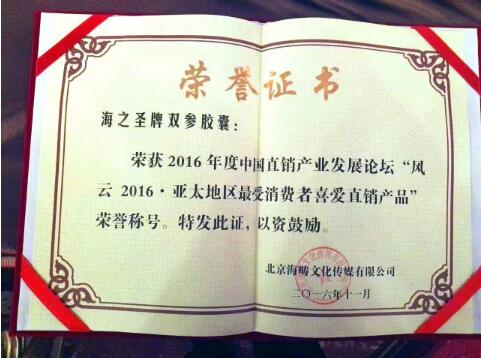 荣誉证书
海之圣牌双参胶囊：
荣获2016年度中国直销产业发展论坛“风
云2016·亚太地区最受消费者喜爱直销产品”
荣誉称号。特发此证，以资鼓励。
北京海畴文化传媒有限公司
二〇一六年十一月